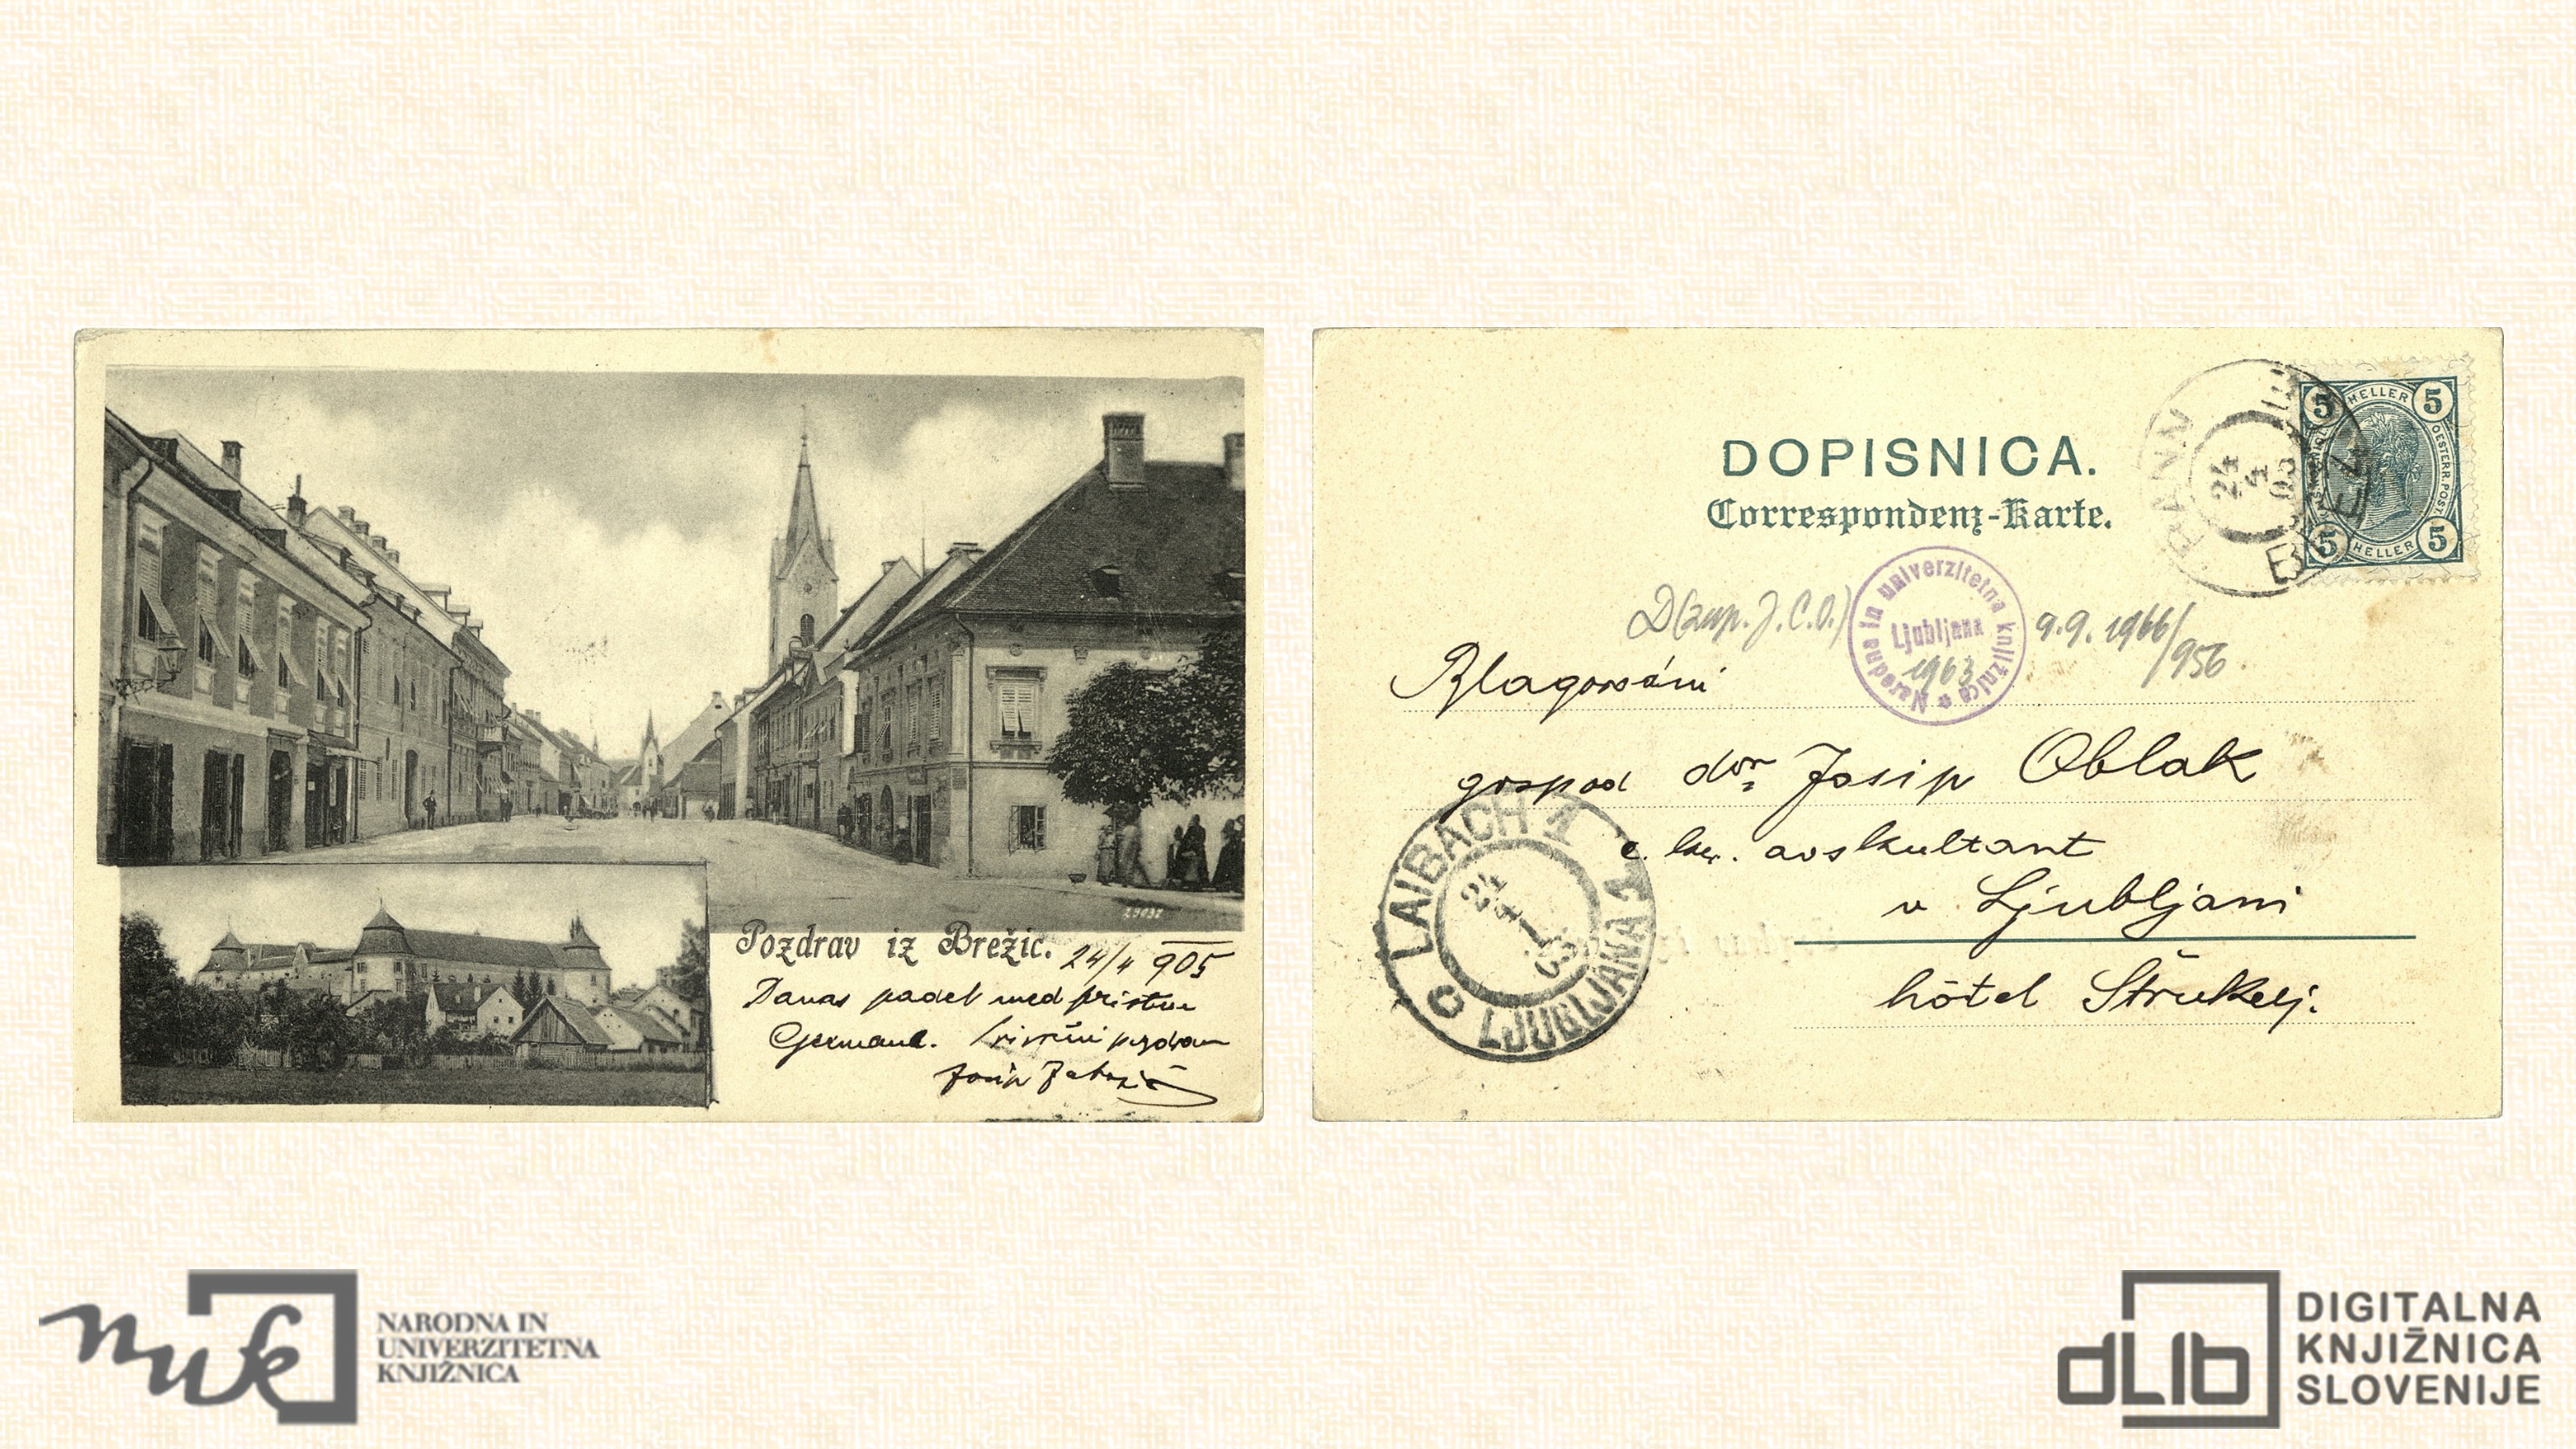 29032
Pozdrav iz Brežic. 24/4 905
Danas padel med pristne
Germane. pozdrav
Josip
DOPISNICA.
Correspondenz-Karte.
HELLER
5 5
OESTERR. POST
5 5
HELLER
RANN
24
4
05
BREŽ
D(zap. J. C. O.)
Narodna in univerzitetna knjižnica
Ljubljana
1963
9.9.1966/956
Blagorodni
gospod dor Josip Oblak
c. kr. avskultant
v Ljubljani
hôtel Štrukelj.
LAIBACH 1
24
4
05
LJUBLJANA 1
C
nuk
NARODNA IN
UNIVERZITETNA
KNJIŽNICA
dLib
DIGITALNA
KNJIŽNICA
SLOVENIJE